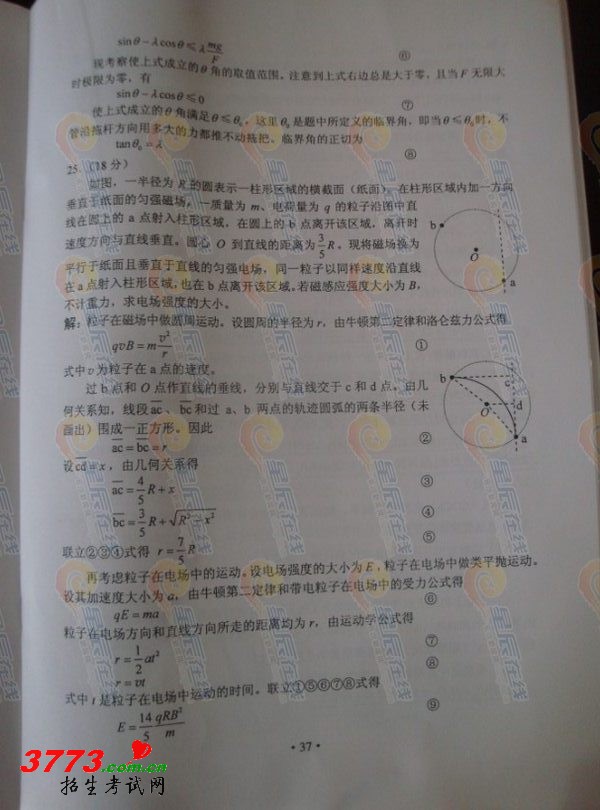 sinθ − λcosθ ≤ λ mg/F ⑥
现考察使上式成立的θ角的取值范围。注意到上式右边总是大于零，且当F无限大
时极限为零，有
sinθ − λcosθ ≤ 0 ⑦
使上式成立的θ角满足θ≤θ₀，这里θ₀是题中所定义的临界角，即当θ≤θ₀时，不
管沿拖杆方向用多大的力都推不动拖把。临界角的正切为
tanθ₀ = λ ⑧
25.（18分）
如图，一半径为R的圆表示一柱形区域的横截面（纸面）。在柱形区域内加一方向
垂直于纸面的匀强磁场，一质量为m、电荷量为q的粒子沿图中直
线在圆上的a点射入柱形区域，在圆上的b点离开该区域，离开时
速度方向与直线垂直。圆心O到直线的距离为3/5 R。现将磁场换为
平行于纸面且垂直于直线的匀强电场，同一粒子以同样速度沿直线
在a点射入柱形区域，也在b点离开该区域。若磁感应强度大小为B，
不计重力，求电场强度的大小。
b
O
a
解：粒子在磁场中做圆周运动。设圆周的半径为r，由牛顿第二定律和洛仑兹力公式得
qvB = m v²/r ①
式中v为粒子在a点的速度。
过b点和O点作直线的垂线，分别与直线交于c和d点。由几
何关系知，线段ac、bc和过a、b两点的轨迹圆弧的两条半径（未
画出）围成一正方形。因此
ac = bc = r ②
设cd = x，由几何关系得
ac = 4/5 R + x ③
bc = 3/5 R + √(R² − x²) ④
联立②③④式得 r = 7/5 R ⑤
b
c
O
d
a
再考虑粒子在电场中的运动。设电场强度的大小为E，粒子在电场中做类平抛运动。
设其加速度大小为a，由牛顿第二定律和带电粒子在电场中的受力公式得
qE = ma ⑥
粒子在电场方向和直线方向所走的距离均为r，由运动学公式得
r = 1/2 at² ⑦
r = vt ⑧
式中t是粒子在电场中运动的时间。联立①⑤⑥⑦⑧式得
E = 14/5 qRB²/m ⑨
·37·
3773.com.cn
招生考试网
星辰在线